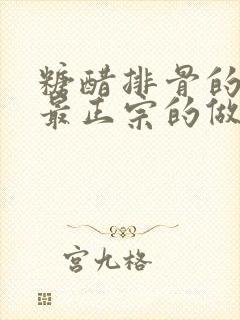 糖醋排骨的
最正宗的做
宫九格